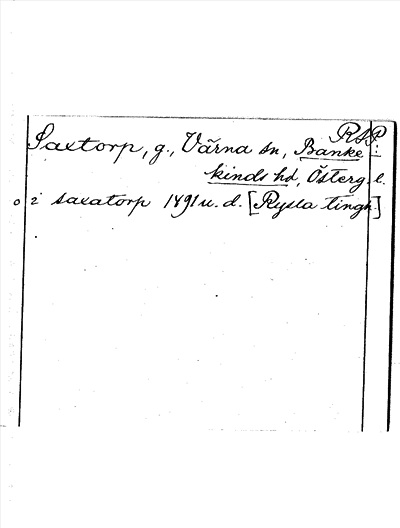 RAP
Saxtorp, g., Värna sn, Banke :
kinds hd, Österg. l.
o i saxatorp 1491 u. d. [Rysta tingh.]